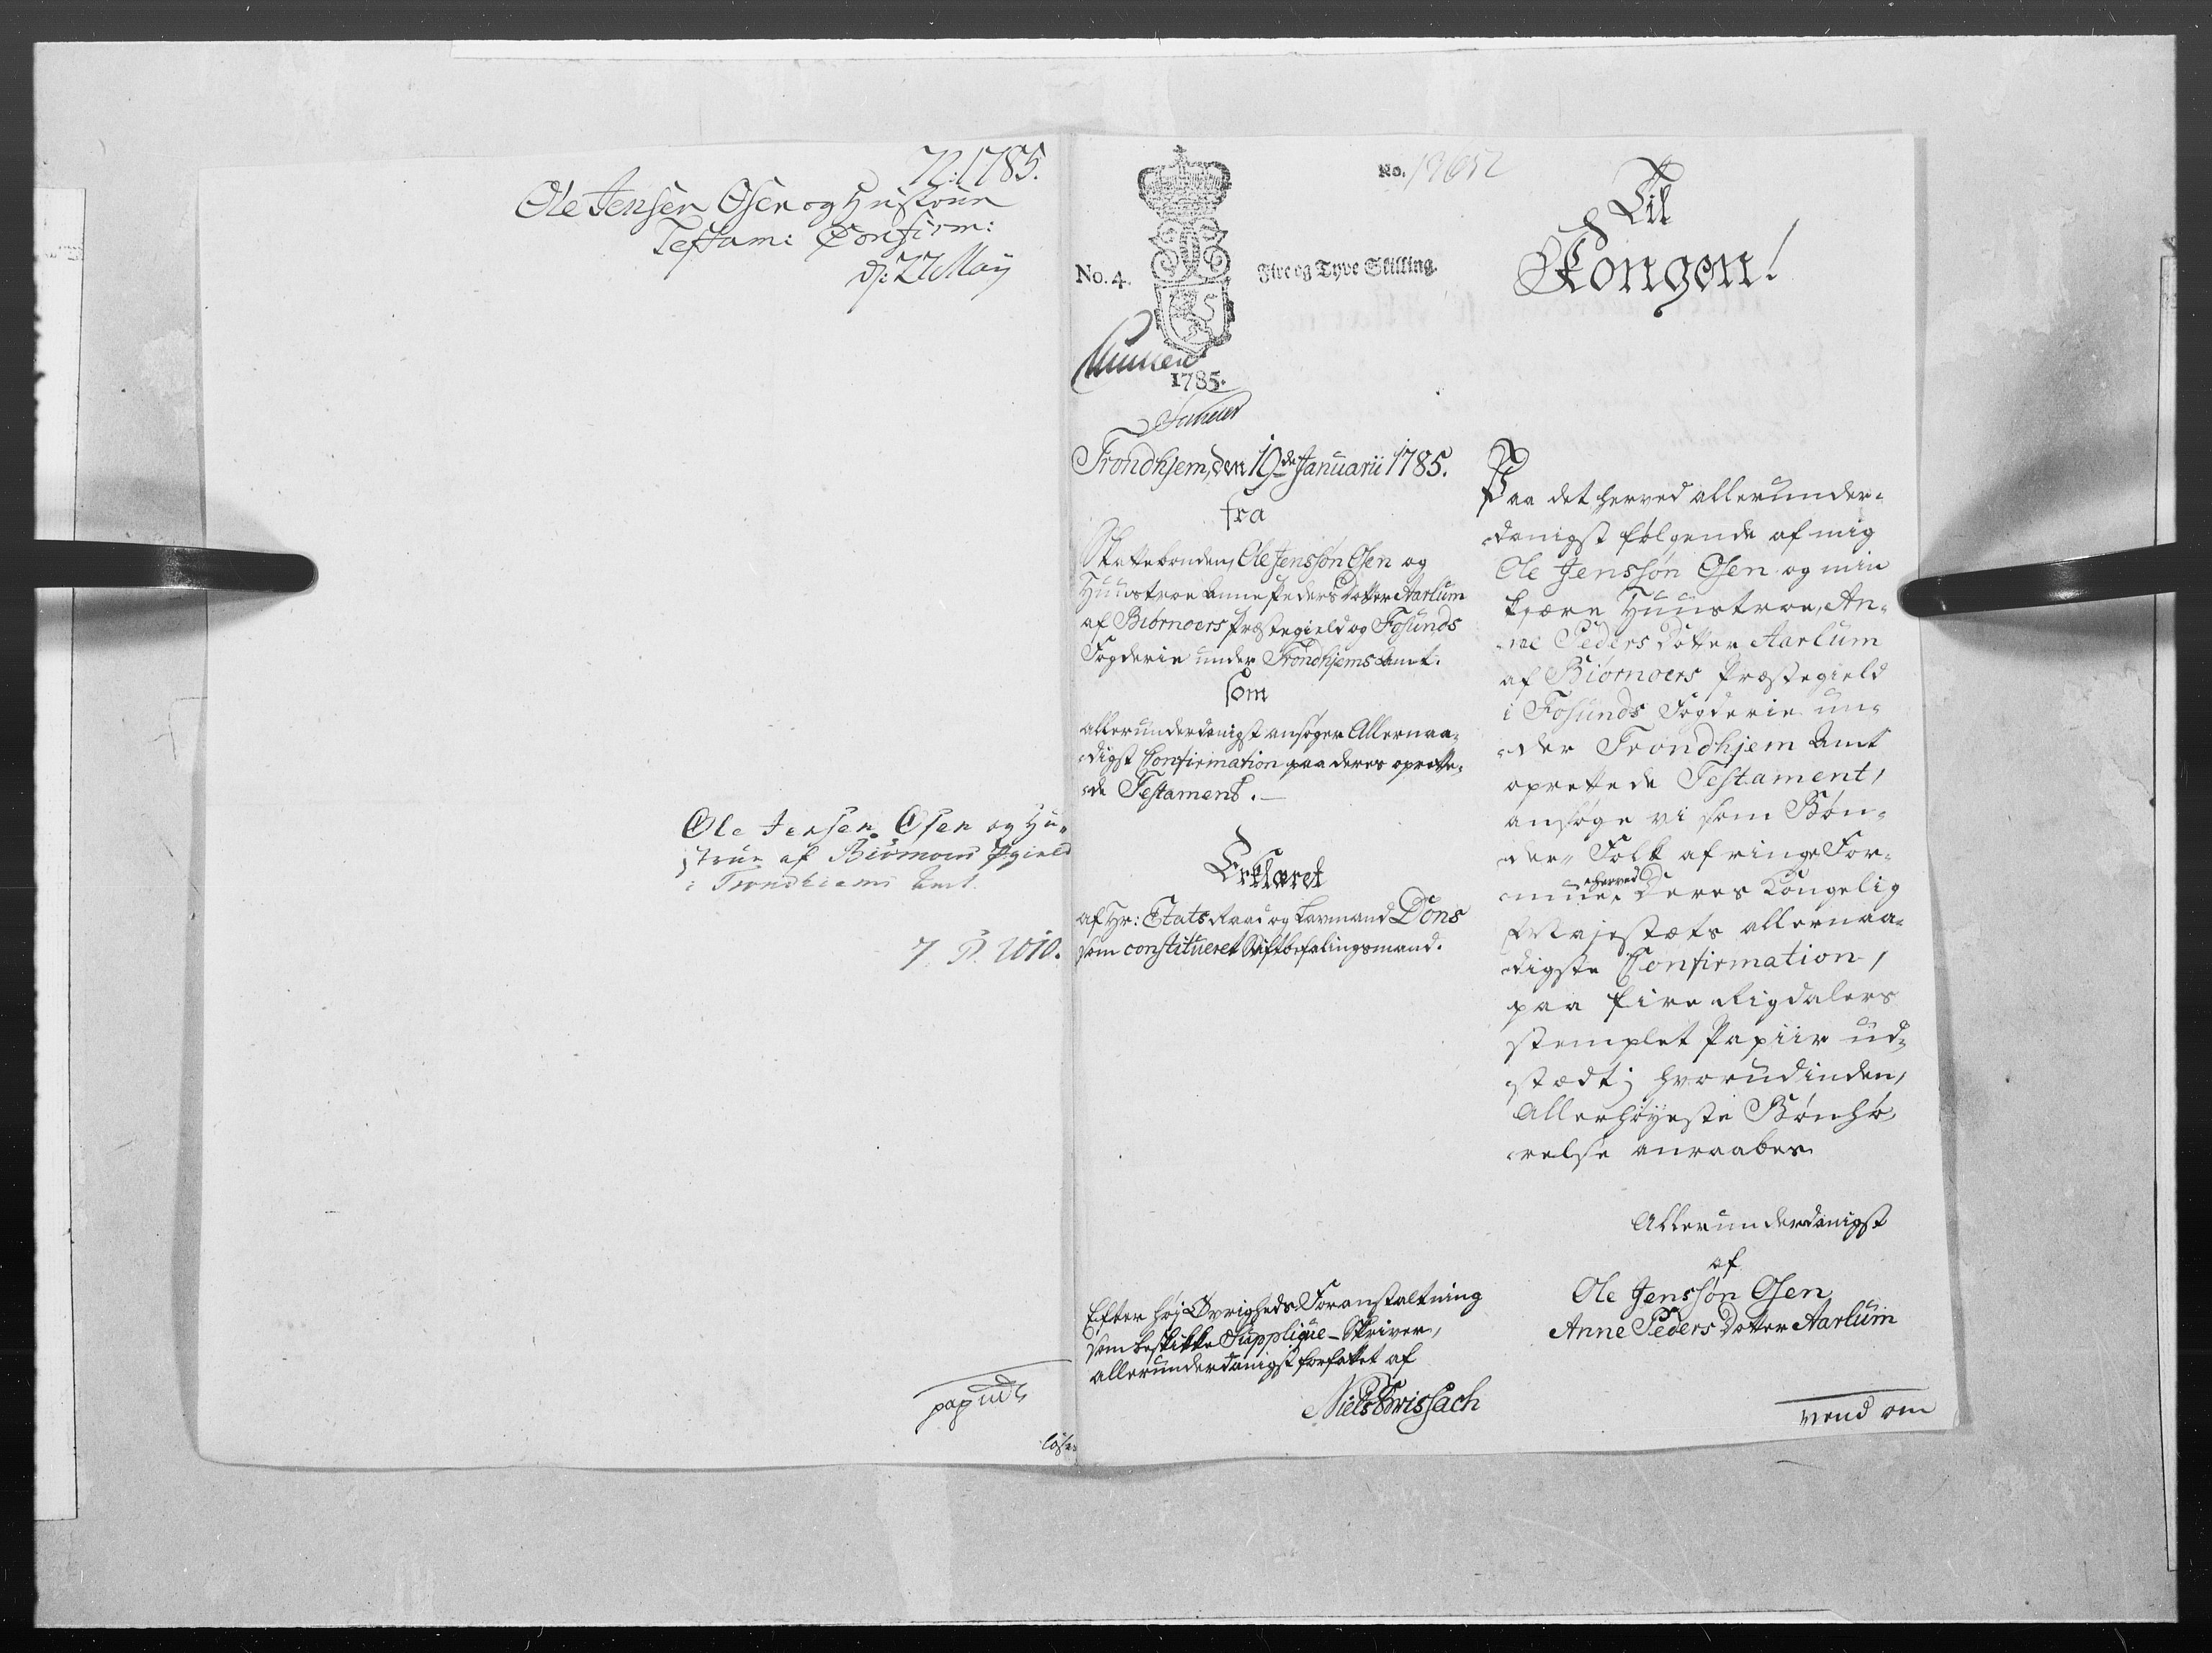 72:1785.
Ole Jensen Osen og Hustrue
Testam: Confirm:
d: 27 Maÿ
Ole Jensen Osen og Hu-
strue af Biørnoers Pgield
i Trondhiems Amt.
7. P. 1010.
No. 4.
Fire og Tyve Skilling.
1785.
No. 12652
Trondhjem, den 19de Januarii 1785.
fra
Skattebonden, Ole Jenssøn Osen og
Huustroe Anne Peders Dotter Aarlum
af Biørnoers Præstegield og Fosunds
Fogderie under Trondhjems Amt.
som
allerunderdanigst ansøger Allernaa-
digst Confirmation paa deres oprette-
de Testament.
Erklæret
af Hr: Etats Raad og Lavmand Dons
som constitueret Stiftbefalingsmand.
Efter høj Øvrigheds Foranstaltning
som beskikke Supplique-Skriver,
allerunderdanigst forfattet af
Niels Brissach
Til
Kongen!
Paa det herved allerunder-
danigst følgende af mig
Ole Jenssøn Osen og min
kjære Huustroe, An-
ne Peders Dotter Aarlum
af Biørnoers Præstegield
i Fosunds Fogderie un-
der Trondhjem Amt
oprettede Testament,
ansøge vi som Bøn-
der Folk af ringe For-
mue, herved Deres Kongelig
Majestæts allernaa-
digste Confirmation,
paa fire Rigdalers
stemplet Papiir ud-
stædt; hvorudinden,
Allerhøyeste Bønhø-
relse anraabes
Allerunderdanigst
af
Ole Jenssøn Osen
Anne Peders Dotter Aarlum
vend om